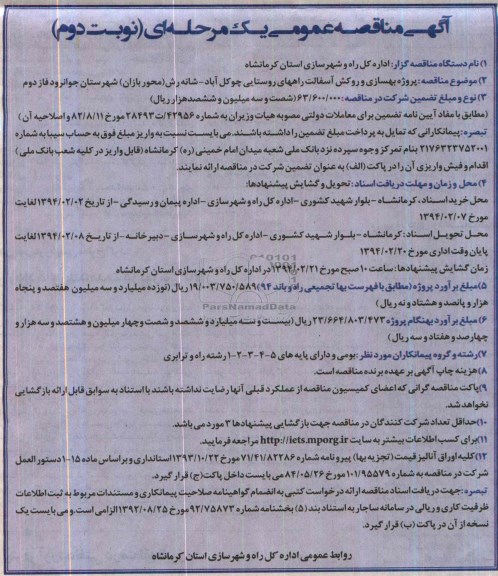 آگهی مناقصه عمومی یک مرحله‌ای (نوبت دوم)
۱) نام دستگاه مناقصه گزار: اداره کل راه و شهرسازی استان کرمانشاه
۲) موضوع مناقصه: پروژه بهسازی و روکش آسفالت راههای روستایی چوکل آباد-شانه رش (محور بازان) شهرستان جوانرود فاز دوم
۳) نوع و مبلغ تضمین شرکت در مناقصه: ۶۳/۶۰۰/۰۰۰ (شصت و سه میلیون و ششصد هزار ریال)
(مطابق با مفاد آیین نامه تضمین برای معاملات دولتی مصوبه هیات وزیران به شماره ۴۲۹۵۶/ت۲۸۴۹۳ مورخ ۸۲/۸/۱۱ و اصلاحیه آن)
تبصره: پیمانکارانی که تمایل به پرداخت مبلغ تضمین را داشته باشند، می بایست نسبت به واریز مبلغ فوق به حساب سیبا به شماره
۲۱۷۶۴۳۳۷۵۲۰۰۱ بنام تمرکز وجوه سپرده نزد بانک ملی شعبه میدان امام خمینی (ره) کرمانشاه (قابل واریز در کلیه شعب بانک ملی)
اقدام و فیش واریزی آن را در پاکت (الف) به عنوان تضمین شرکت در مناقصه ارائه نمایند.
۴) محل و زمان و مهلت دریافت اسناد: تحویل و گشایش پیشنهادها:
محل خرید اسناد، کرمانشاه - بلوار شهید کشوری - اداره کل راه و شهرسازی - اداره پیمان و رسیدگی - از تاریخ ۱۳۹۴/۰۲/۰۲ لغایت
مورخ ۱۳۹۴/۰۲/۰۷
محل تحویل اسناد: کرمانشاه - بلوار شهید کشوری - اداره کل راه و شهرسازی - دبیرخانه - از تاریخ ۱۳۹۴/۰۲/۰۸ لغایت
پایان وقت اداری مورخ ۱۳۹۴/۰۲/۲۰
زمان گشایش پیشنهادها: ساعت ۱۰ صبح مورخ ۱۳۹۴/۰۲/۲۱ در اداره کل راه و شهرسازی استان کرمانشاه
۵) مبلغ برآورد پروژه (مطابق با فهرست بها تجمیعی راه و باند ۹۴) ۱۹/۰۰۳/۷۵۰/۵۸۹ ریال (نوزده میلیارد و سه میلیون هفتصد و پنجاه
هزار و پانصد و هشتاد و نه ریال)
۶) مبلغ برآورد بهنگام پروژه ۲۳/۶۶۴/۸۰۳/۴۷۳ ریال (بیست و سه میلیارد و ششصد و شصت و چهار میلیون و هشتصد و سه هزار و
چهارصد و هفتاد و سه ریال)
۷) رشته و گروه پیمانکاران مورد نظر: بومی و دارای پایه های ۵-۴-۳-۲-۱ رشته راه و ترابری
۸) هزینه چاپ آگهی بر عهده برنده مناقصه است.
۹) پاکت مناقصه گرانی که اعضای کمیسیون مناقصه از عملکرد قبلی آنها رضایت نداشته باشند با استناد به سوابق قابل ارائه بازگشایی
نخواهد شد.
۱۰) حداقل تعداد شرکت کنندگان در مناقصه جهت بازگشایی پیشنهادها ۳ مورد می باشد.
۱۱) برای کسب اطلاعات بیشتر به سایت http://iets.mporg.ir مراجعه فرمایید.
۱۲) کلیه اوراق آنالیز قیمت (تجزیه بها) پیرو نامه شماره ۷۱/۴۱/۸۲۲۸۶ مورخ ۱۳۹۳/۱۰/۲۲ استانداری و بر اساس ماده ۱۵-۱ دستور العمل
شرکت در مناقصه به شماره ۱۰۱/۹۵۵۷۹ مورخ ۸۴/۰۵/۲۶ می بایست داخل پاکت (ج) قرار گیرد.
تبصره: جهت دریافت اسناد مناقصه ارائه درخواست کتبی به انضمام گواهینامه صلاحیت پیمانکاری و مستندات مربوط به ثبت اطلاعات
ظرفیت کاری و ریالی در سامانه ساجار به استناد بند (۵) بخشنامه شماره ۹۲/۷۵۸۷۳ مورخ ۱۳۹۲/۰۸/۲۵ الزامی است. و می بایست یک
نسخه از آن در پاکت (ب) قرار گیرد.
روابط عمومی اداره کل راه و شهرسازی استان کرمانشاه
ParsNamadData